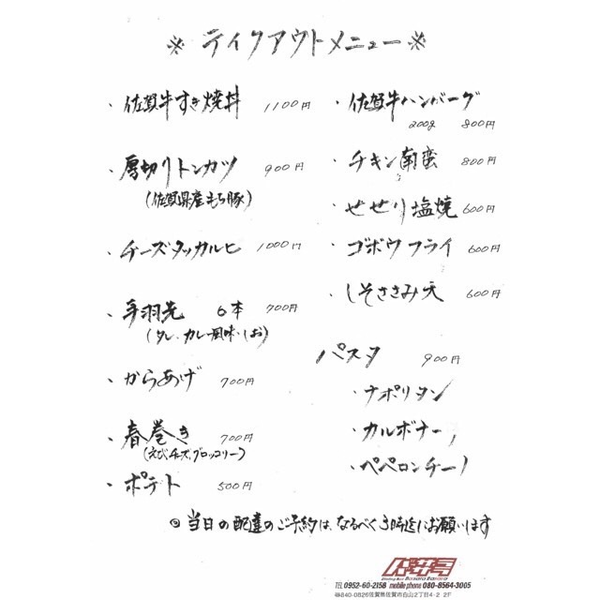 ※ テイクアウトメニュー ※
・佐賀牛すき焼丼 1100円
・厚切りトンカツ 900円
(佐賀県産もち豚)
・チーズタッカルビ 1000円
・手羽先 6本 700円
(タレ・カレー風味・しお)
・からあげ 700円
・春巻き 700円
(えび、チーズ、ブロッコリー)
・ポテト 500円
・佐賀牛ハンバーグ
200g 800円
・チキン南蛮 800円
・せせり塩焼 600円
・ゴボウフライ 600円
・しそささみ天 600円
パスタ 900円
・ナポリタン
・カルボナーラ
・ペペロンチーノ
◎当日の配達のご予約は、なるべく3時迄にお願います
TEL 0952-60-2158 mobile phone 080-8564-3005
〒840-0826佐賀県佐賀市白山2丁目4-2 2F